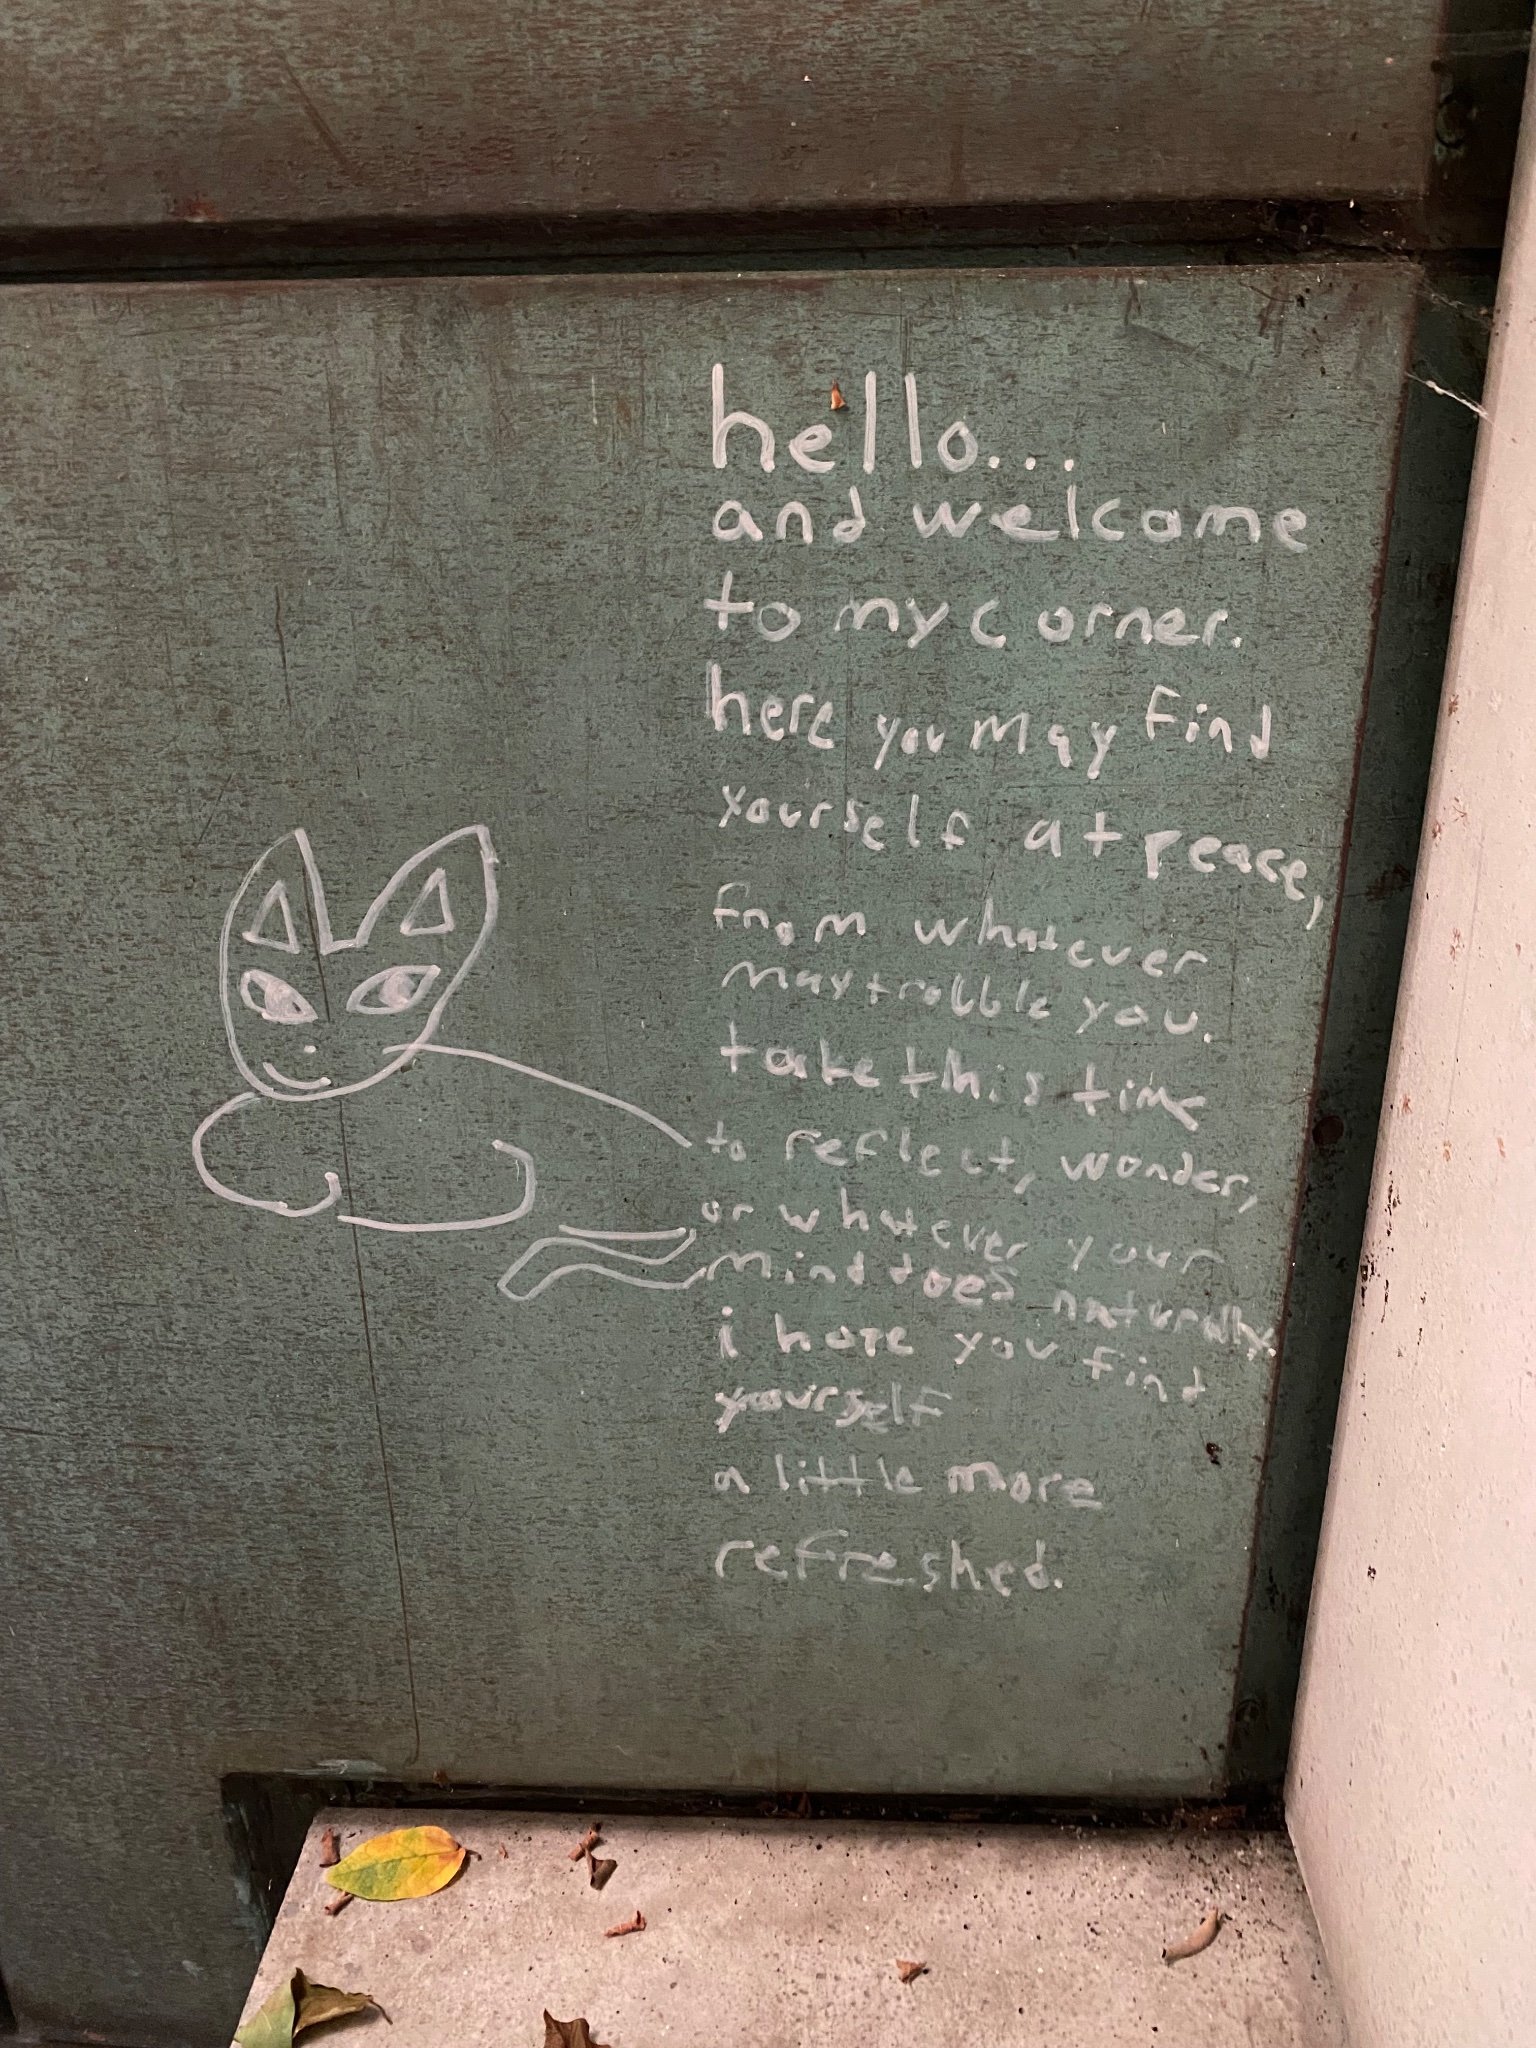 hello...
and welcome
to my corner.
here you may find
yourself at peace,
from whatever
may trouble you.
take this time
to reflect, wonder,
or whatever your
mind does naturally.
i hope you find
yourself
a little more
refreshed.